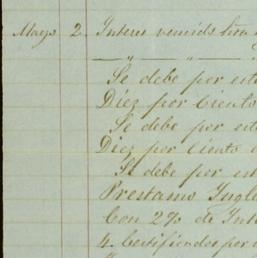 Mayo 2 Interes vencids
— " — " —
Se debe por este
Diez por Ciento
Se debe por este
Diez por Ciento
Se debe por est
Prestamo Ingle
Con 2% de Int
4 Certificados por